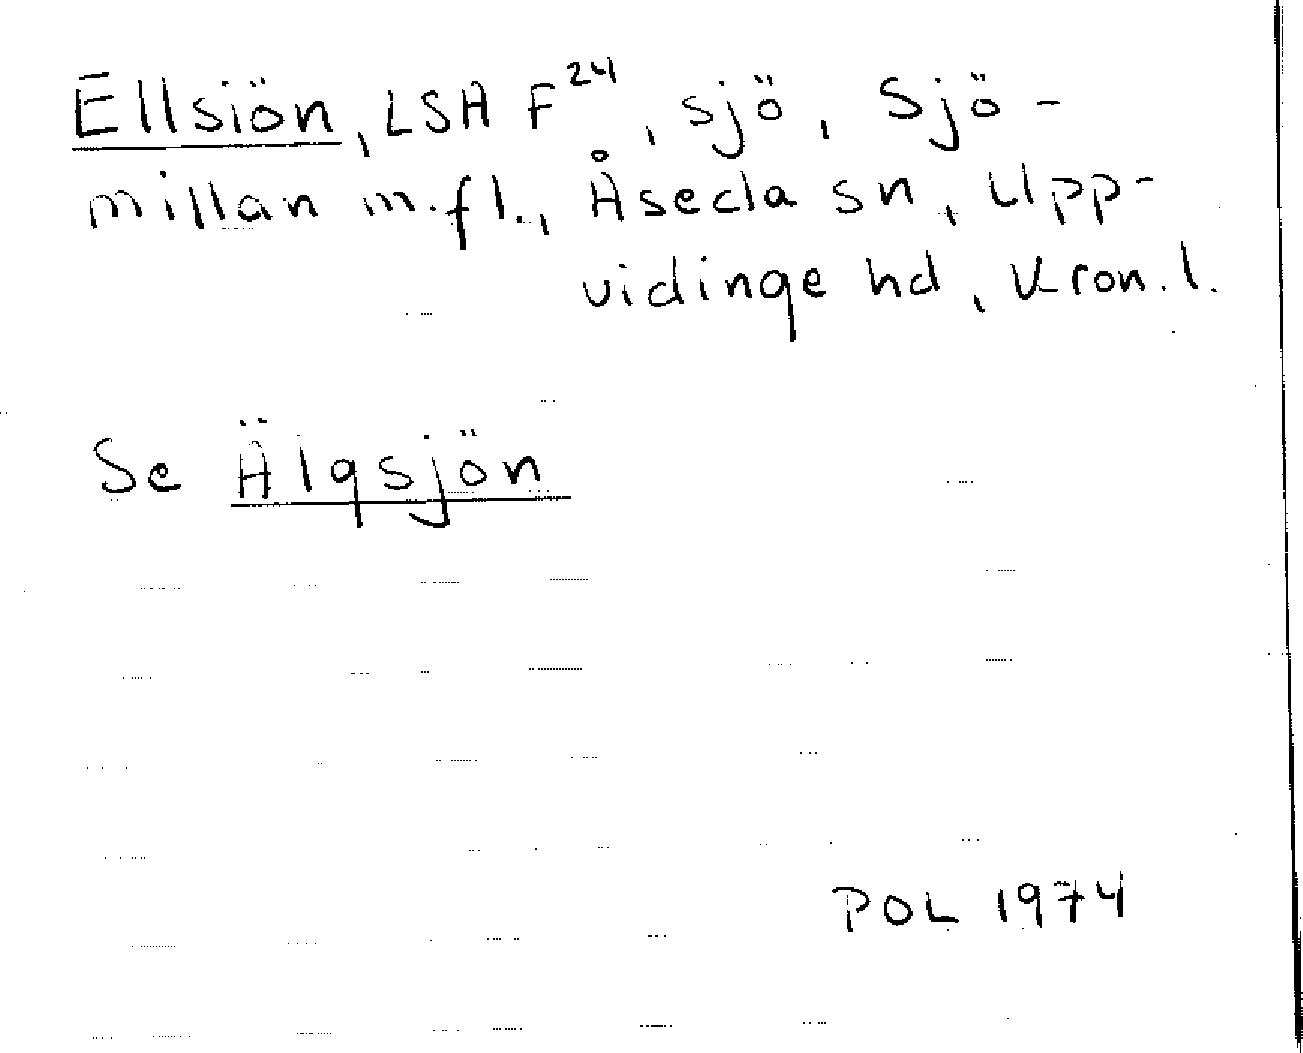 Ellsiön, LSA F24, sjö, Sjö-
millan m.fl., Åseda sn, Upp-
vidinge hd, Kron. l.
Se Älgsjön
POL 1974